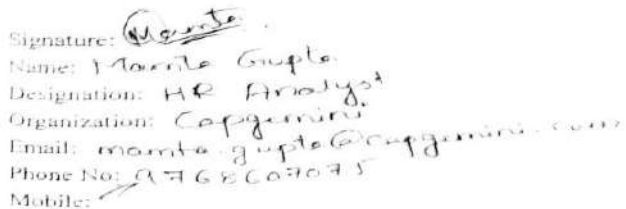 Signature: Mamta
Name: Mamta Gupta
Designation: HR Analyst
Organization: Capgemini
Email: mamta.gupta@capgemini.com
Phone No: 9768607075
Mobile: